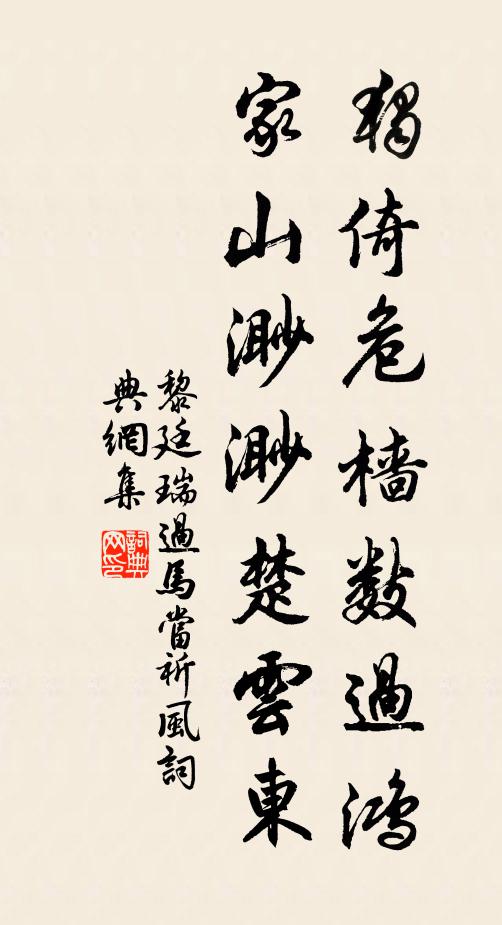 獨倚危檣數過鴻
家山渺渺楚雲東
黎廷瑞過馬當祈風詞
典網集
詞典
网印